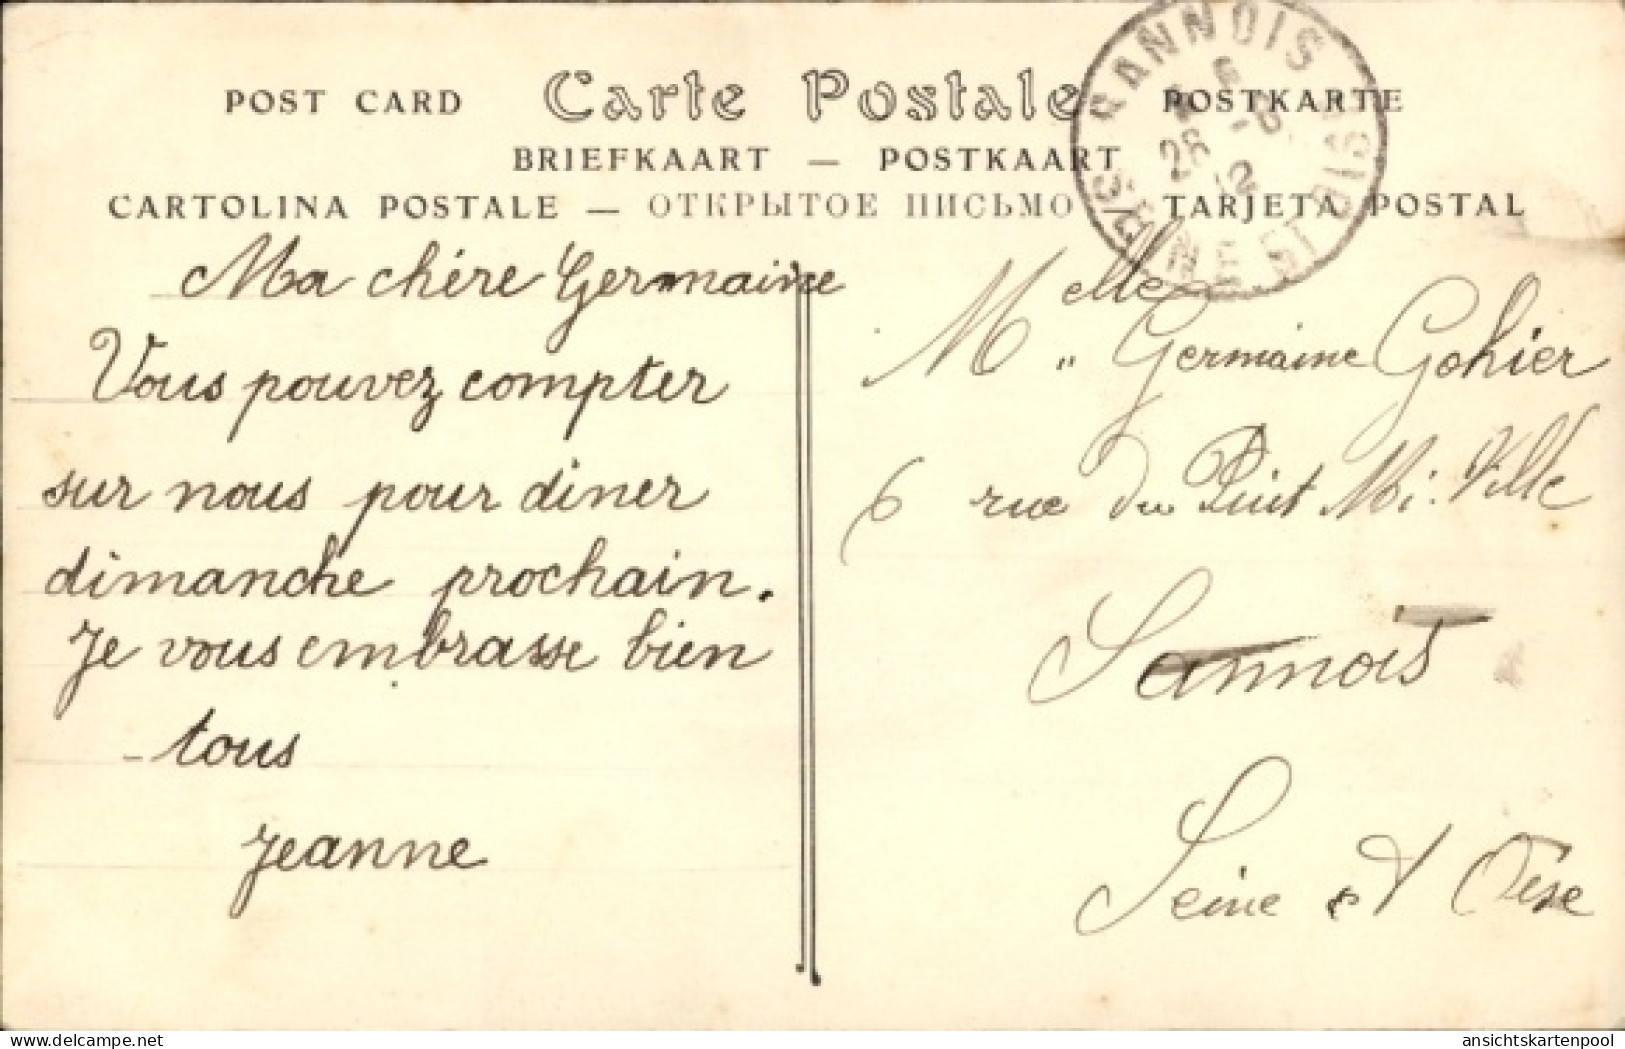 POST CARD Carte Postale POSTKARTE
BRIEFKAART — POSTKAART
CARTOLINA POSTALE — ОТКРЫТОЕ ПИСЬМО — TARJETA POSTAL
SANNOIS
28 -6
12
SEINE ET OISE
Ma chére Germaine
Vous pouvez compter
sur nous pour diner
dimanche prochain.
Je vous embrasse bien
tous
Jeanne
Melle Germaine Gohier
6 rue du Puit Mi-Ville
Sannois
Seine et Oise
delcampe.net
ansichtskartenpool